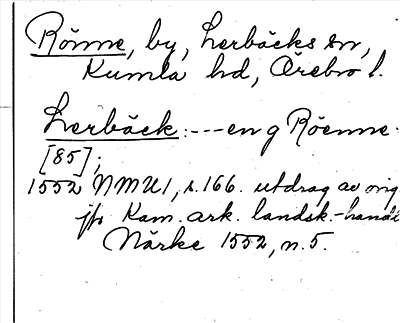 Rönne, by, Lerbäcks sn,
Kumla hd, Örebro l.
Lerbäck: --- en g Röenne.
[85];
1552 NMU1, s. 166. utdrag av orig.
jfr Kam. ark. landsk.-handl
Närke 1552, n. 5.